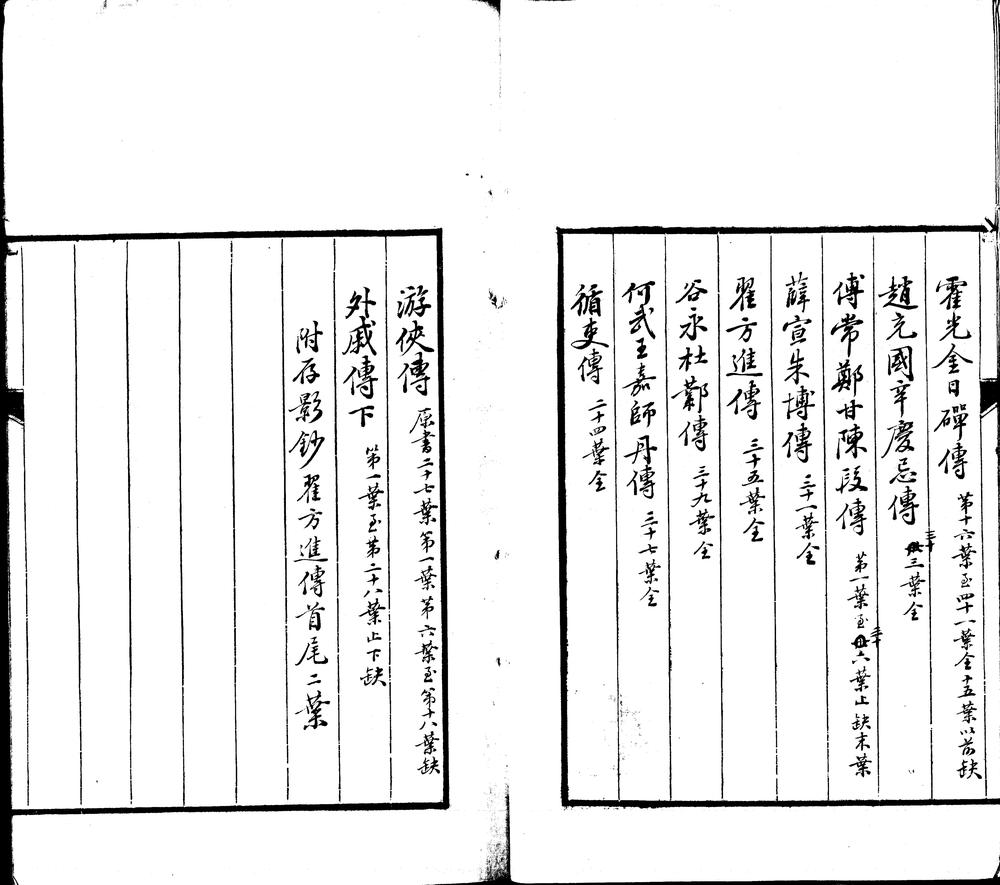 霍光金日磾傳 第十六葉至四十一葉全十五葉以前缺
趙充國辛慶忌傳 三十三葉全
傅常鄭甘陳段傳 第一葉至三十六葉止缺末葉
薛宣朱博傳 三十一葉全
翟方進傳 三十五葉全
谷永杜鄴傳 三十九葉全
何武王嘉師丹傳 三十七葉全
循吏傳 二十四葉全
游俠傳 原書二十七葉第一葉第六葉至第十八葉缺
外戚傳下 第一葉至第二十八葉止下缺
附存影鈔翟方進傳首尾二葉